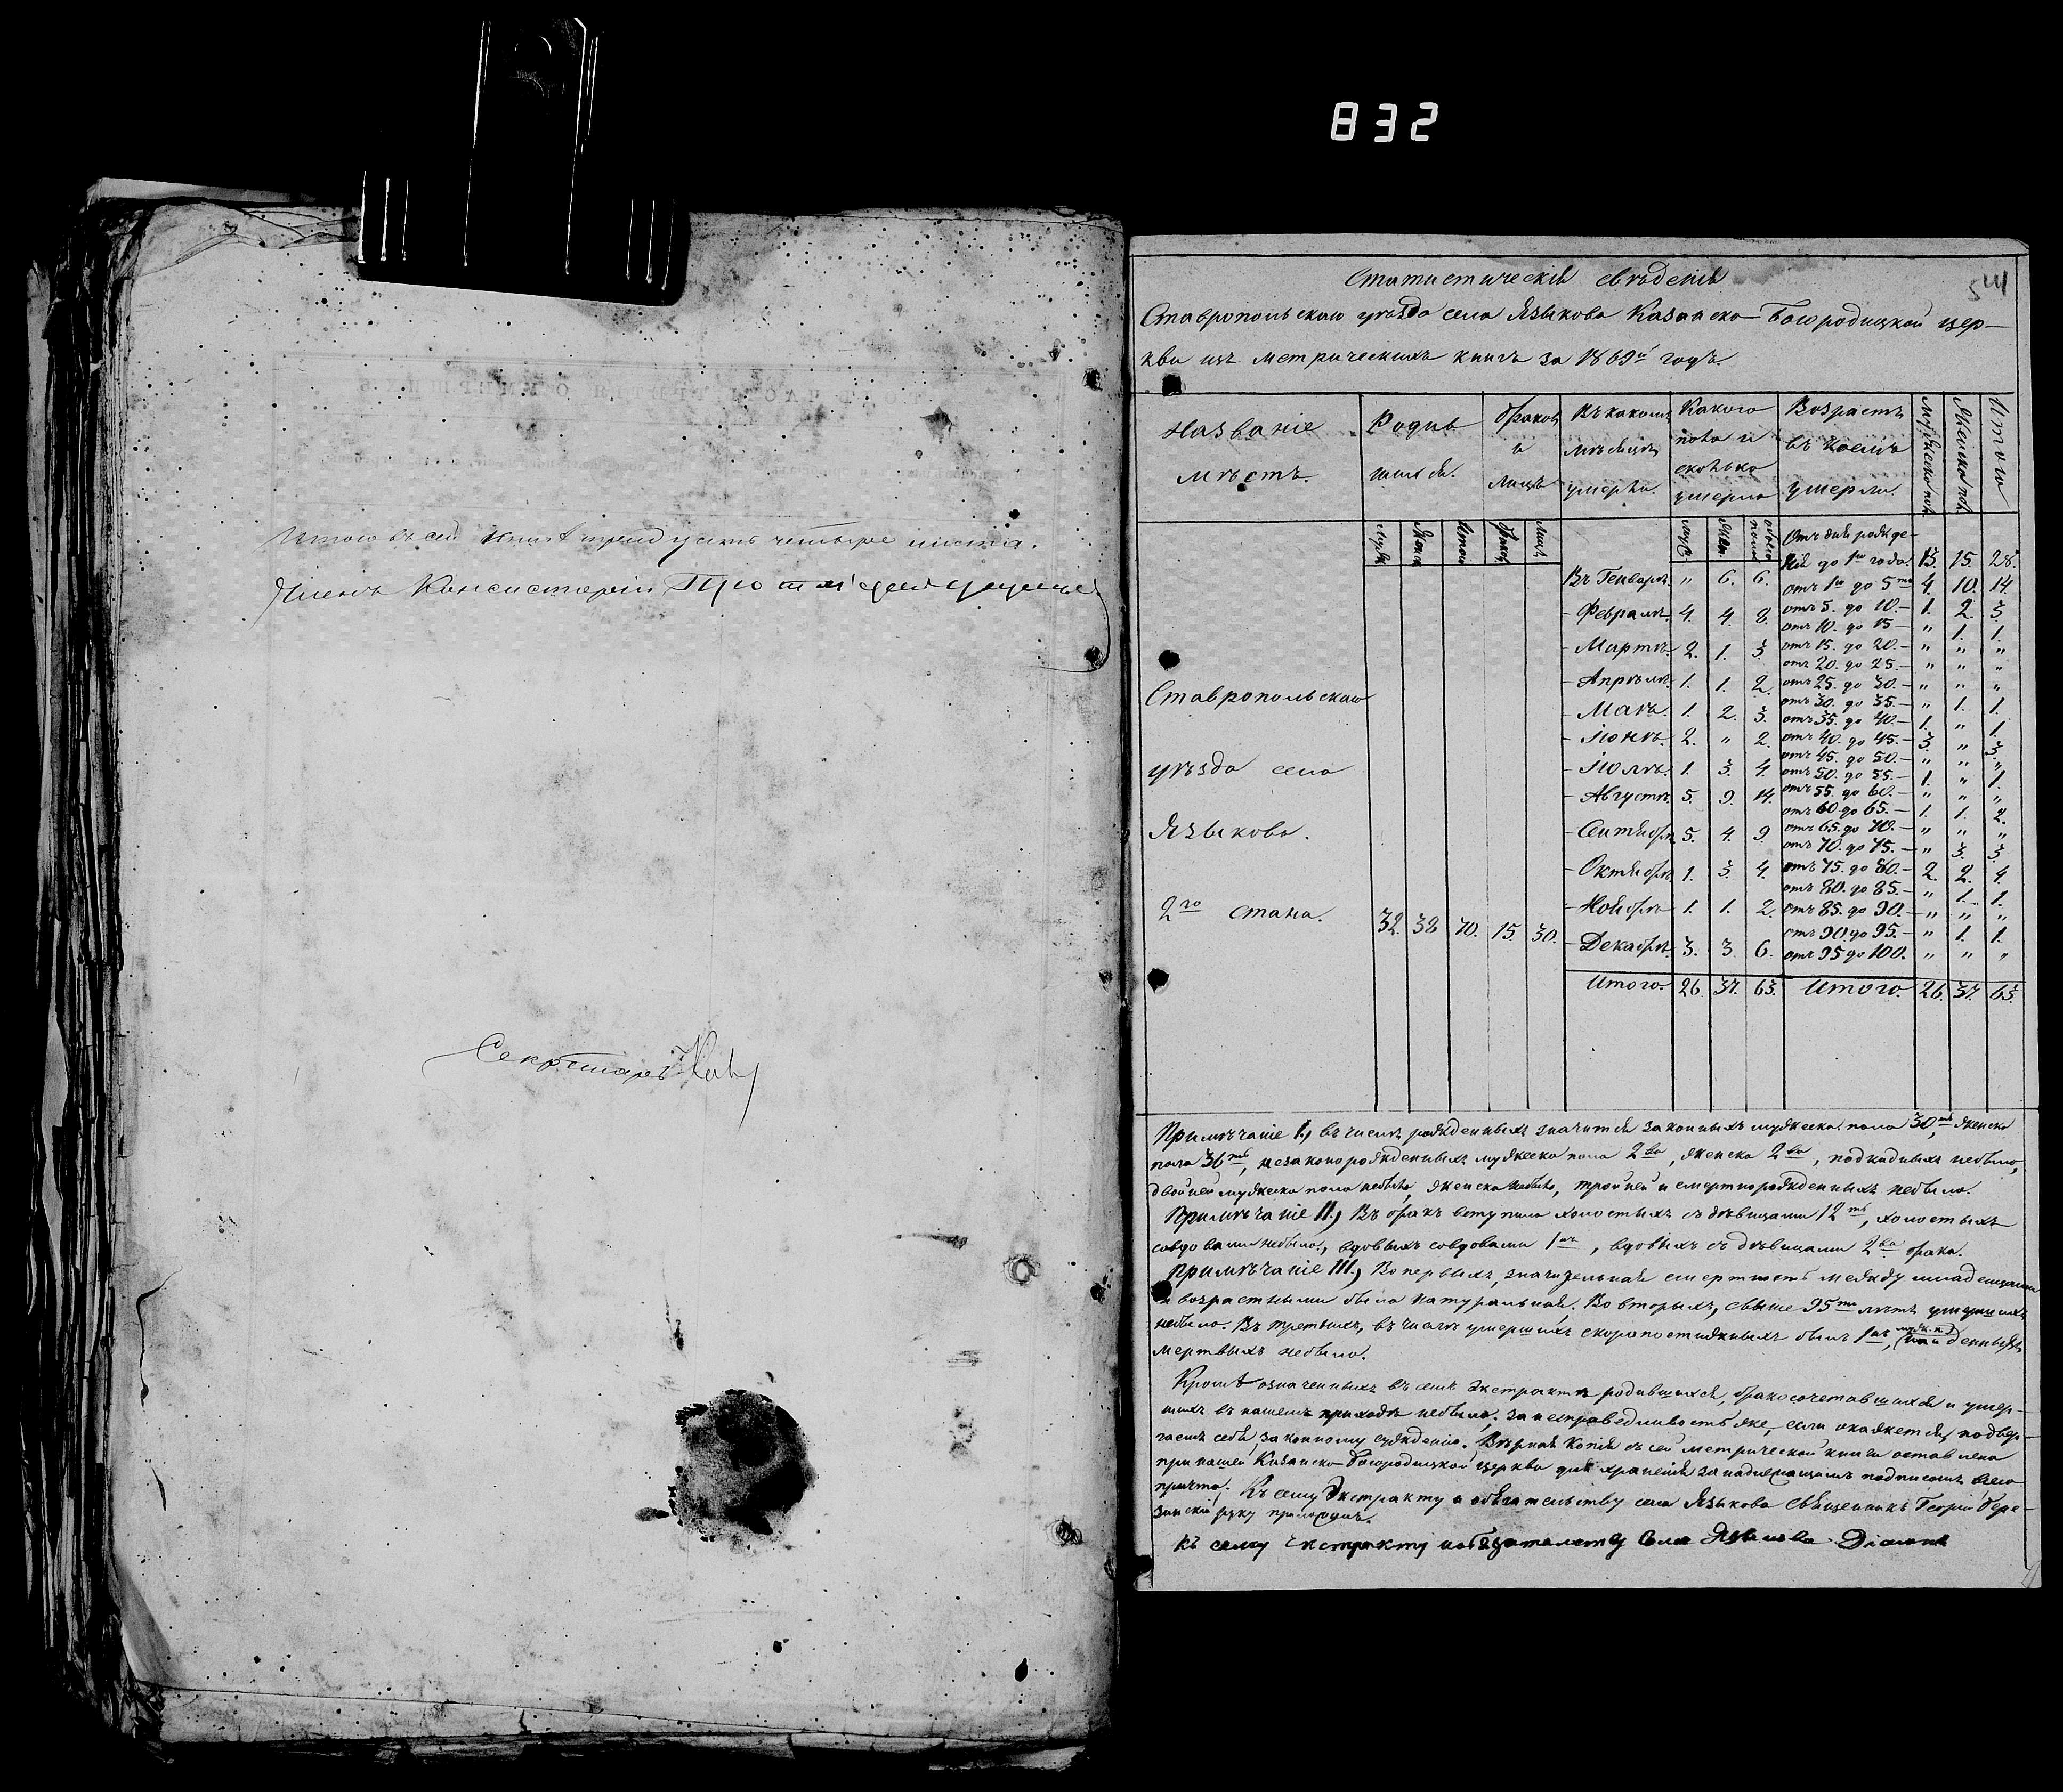 832
Итого въ сей книгѣ тридцать четыре листа.
Членъ Консисторіи
Секретарь
541
Статистическія свѣденія
Ставропольскаго уѣзда села Языкова Казанско-Богородицкой цер-
кви изъ метрическихъ книгъ за 1869й годъ.
Названіе мѣстъ. Родив шихся. браковъ и лицъ Въ какомъ мѣсяцѣ умерли. Какого пола и сколько умерло Возрастъ въ коемъ умерли. Мужеска пол. Женска пол. Итого
Муж. Женс. Итого Брак. Лиц. Муж. Жен. обоего пола
Отъ дня рожде-
нія до 1го года. 13. 15. 28.
Въ Генварѣ. " 6. 6. отъ 1го до 5ти 4. 10. 14.
- Февралѣ. 4. 4. 8. отъ 5. до 10.- 1. 2. 3.
отъ 10. до 15 - " 1. 1.
- Мартѣ. 2. 1. 3. отъ 15. до 20.- " " "
отъ 20. до 25.- " " "
- Апрѣлѣ. 1. 1. 2. отъ 25. до 30.- " " "
Ставропольскаго
отъ 30. до 35.- " 1. 1.
- Маѣ. 1. 2. 3. отъ 35. до 40.- 1. " 1.
- Іюнѣ. 2. " 2. отъ 40. до 45.- 3. " 3.
отъ 45. до 50.- " " "
уѣзда села - Іюлѣ. 1. 3. 4. отъ 50. до 55.- 1. " 1.
- Августѣ. 5. 9. 14. отъ 55. до 60.- " " "
отъ 60. до 65.- 1. 1. 2.
Языкова. - Сентябрѣ 5. 4. 9 отъ 65. до 70.- " " "
отъ 70. до 75.- " 3. 3.
- Октябрѣ 1. 3. 4. отъ 75. до 80.- 2. 2. 4.
отъ 80. до 85.- " 1. 1.
2го стана. 32. 38 70. 15. 30. - Ноябрѣ 1. 1. 2. отъ 85. до 90.- " " "
отъ 90. до 95.- " 1. 1.
- Декабрѣ. 3. 3. 6. отъ 95 до 100. " " "
Итого. 26. 37. 63. Итого. 26. 37. 63.
Примѣчаніе I., въ числѣ рожденныхъ значится законныхъ мужеска пола 30ть, женска
пола 36ть, незаконорожденныхъ мужеска пола 2ва, женска 2ва, подкидныхъ небыло,
двойней мужеска пола небыло, женска небыло, тройней и смертнорожденныхъ небыло.
Примѣчаніе II., Въ бракъ вступило холостыхъ съ дѣвицами 12ть, холостыхъ
совдовами небыло, вдовыхъ совдовами 1нъ, вдовыхъ съ дѣвицами 2ва брака.
Примѣчаніе III., Вопервыхъ, значительная смертность между младенцами
и возрастными была натуральная. Во вторыхъ, свыше 95ти лѣтъ умершихъ
небыло. Въ третьихъ, въ числѣ умершихъ скоропостижныхъ былъ 1нъ, муж. п. найденныхъ
мертвыхъ небыло.
Кромѣ означенныхъ въ семъ Экстрактѣ родившихся, бракосочетавшихся и умер-
шихъ въ нашемъ приходѣ небыло; за несправедливость же, если окажется, подвер-
гаемъ себя законному сужденію. Вѣрная копія съ сей метрической книги оставлена
при нашей Казанско-Богородицкой церкви для храненія за надлежащимъ подписомъ всего
причта. Къ сему Экстракту и обязательству села Языкова Священникъ Георгій Бере-
зинскій руку приложилъ.
Къ сему Экстракту и обязательству села Языкова Діаконъ